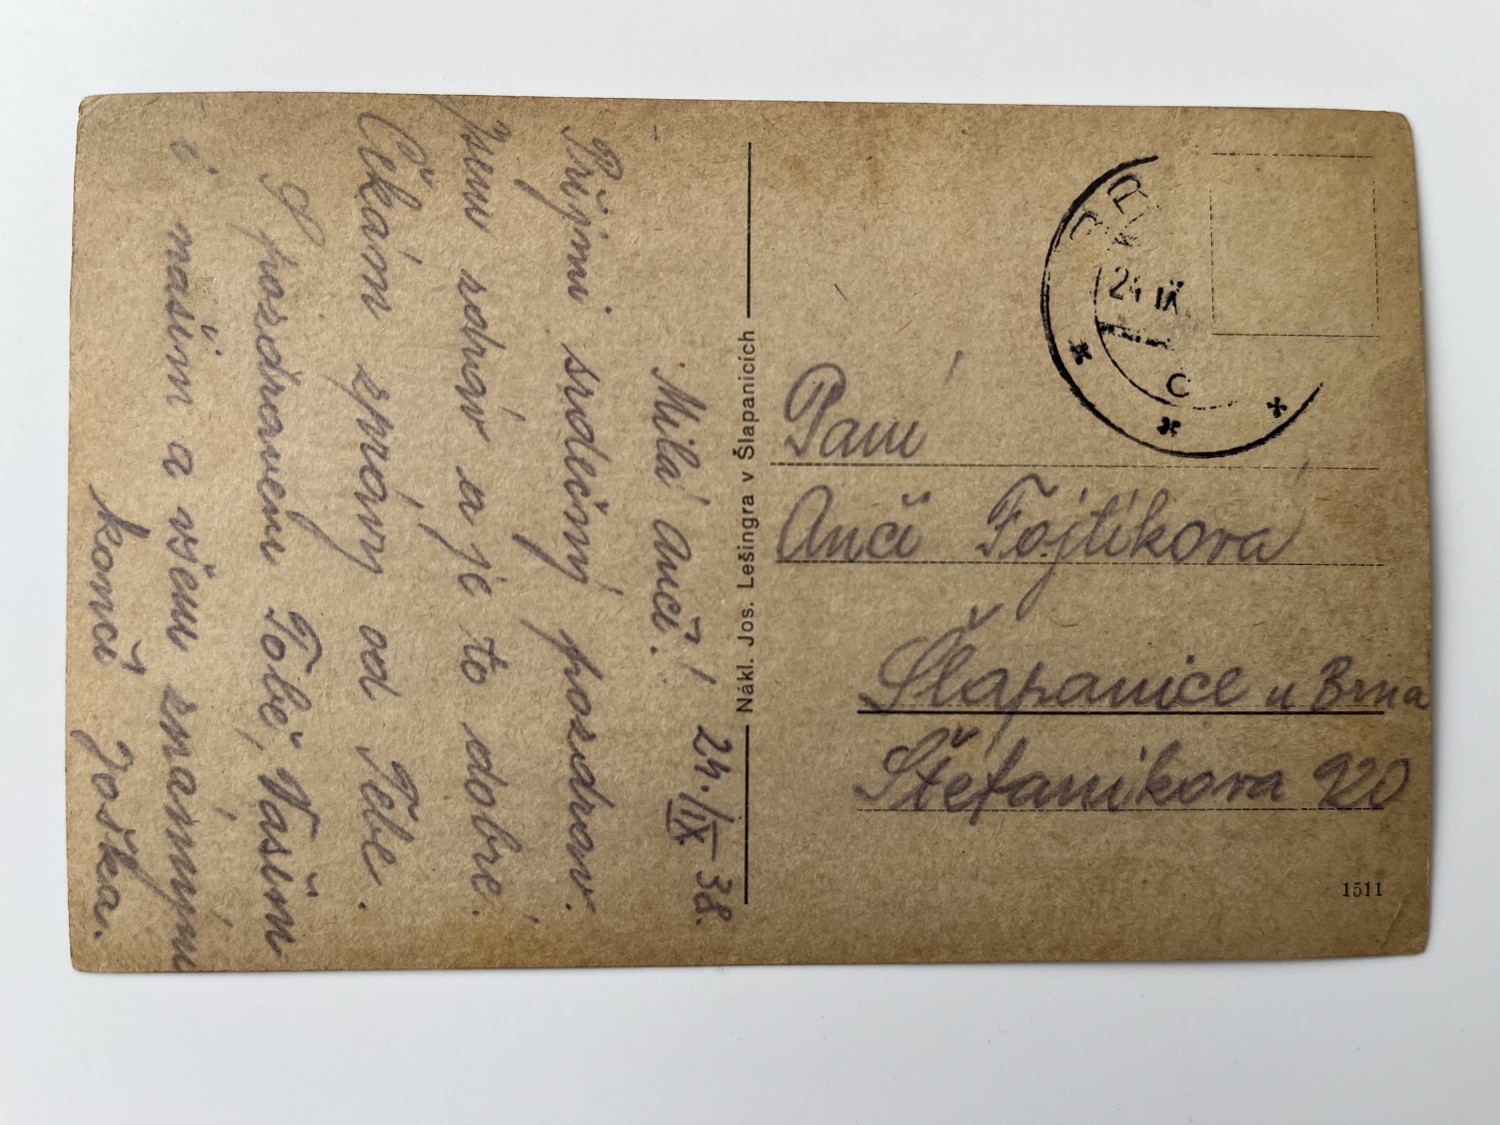 24./IX 38.
Milá Anči!
Přijmi srdečný pozdrav.
Jsem zdráv a je to dobré.
Čekám zprávy od Tebe.
S pozdravem Tobě, Vašim
i našim a všem známým
končí Joška.
Nákl. Jos. Lešingra v Šlapanicích
24 IX
C
Paní
Anči Fojtíkova
Šlapanice u Brna
Štefanikova 920
1511